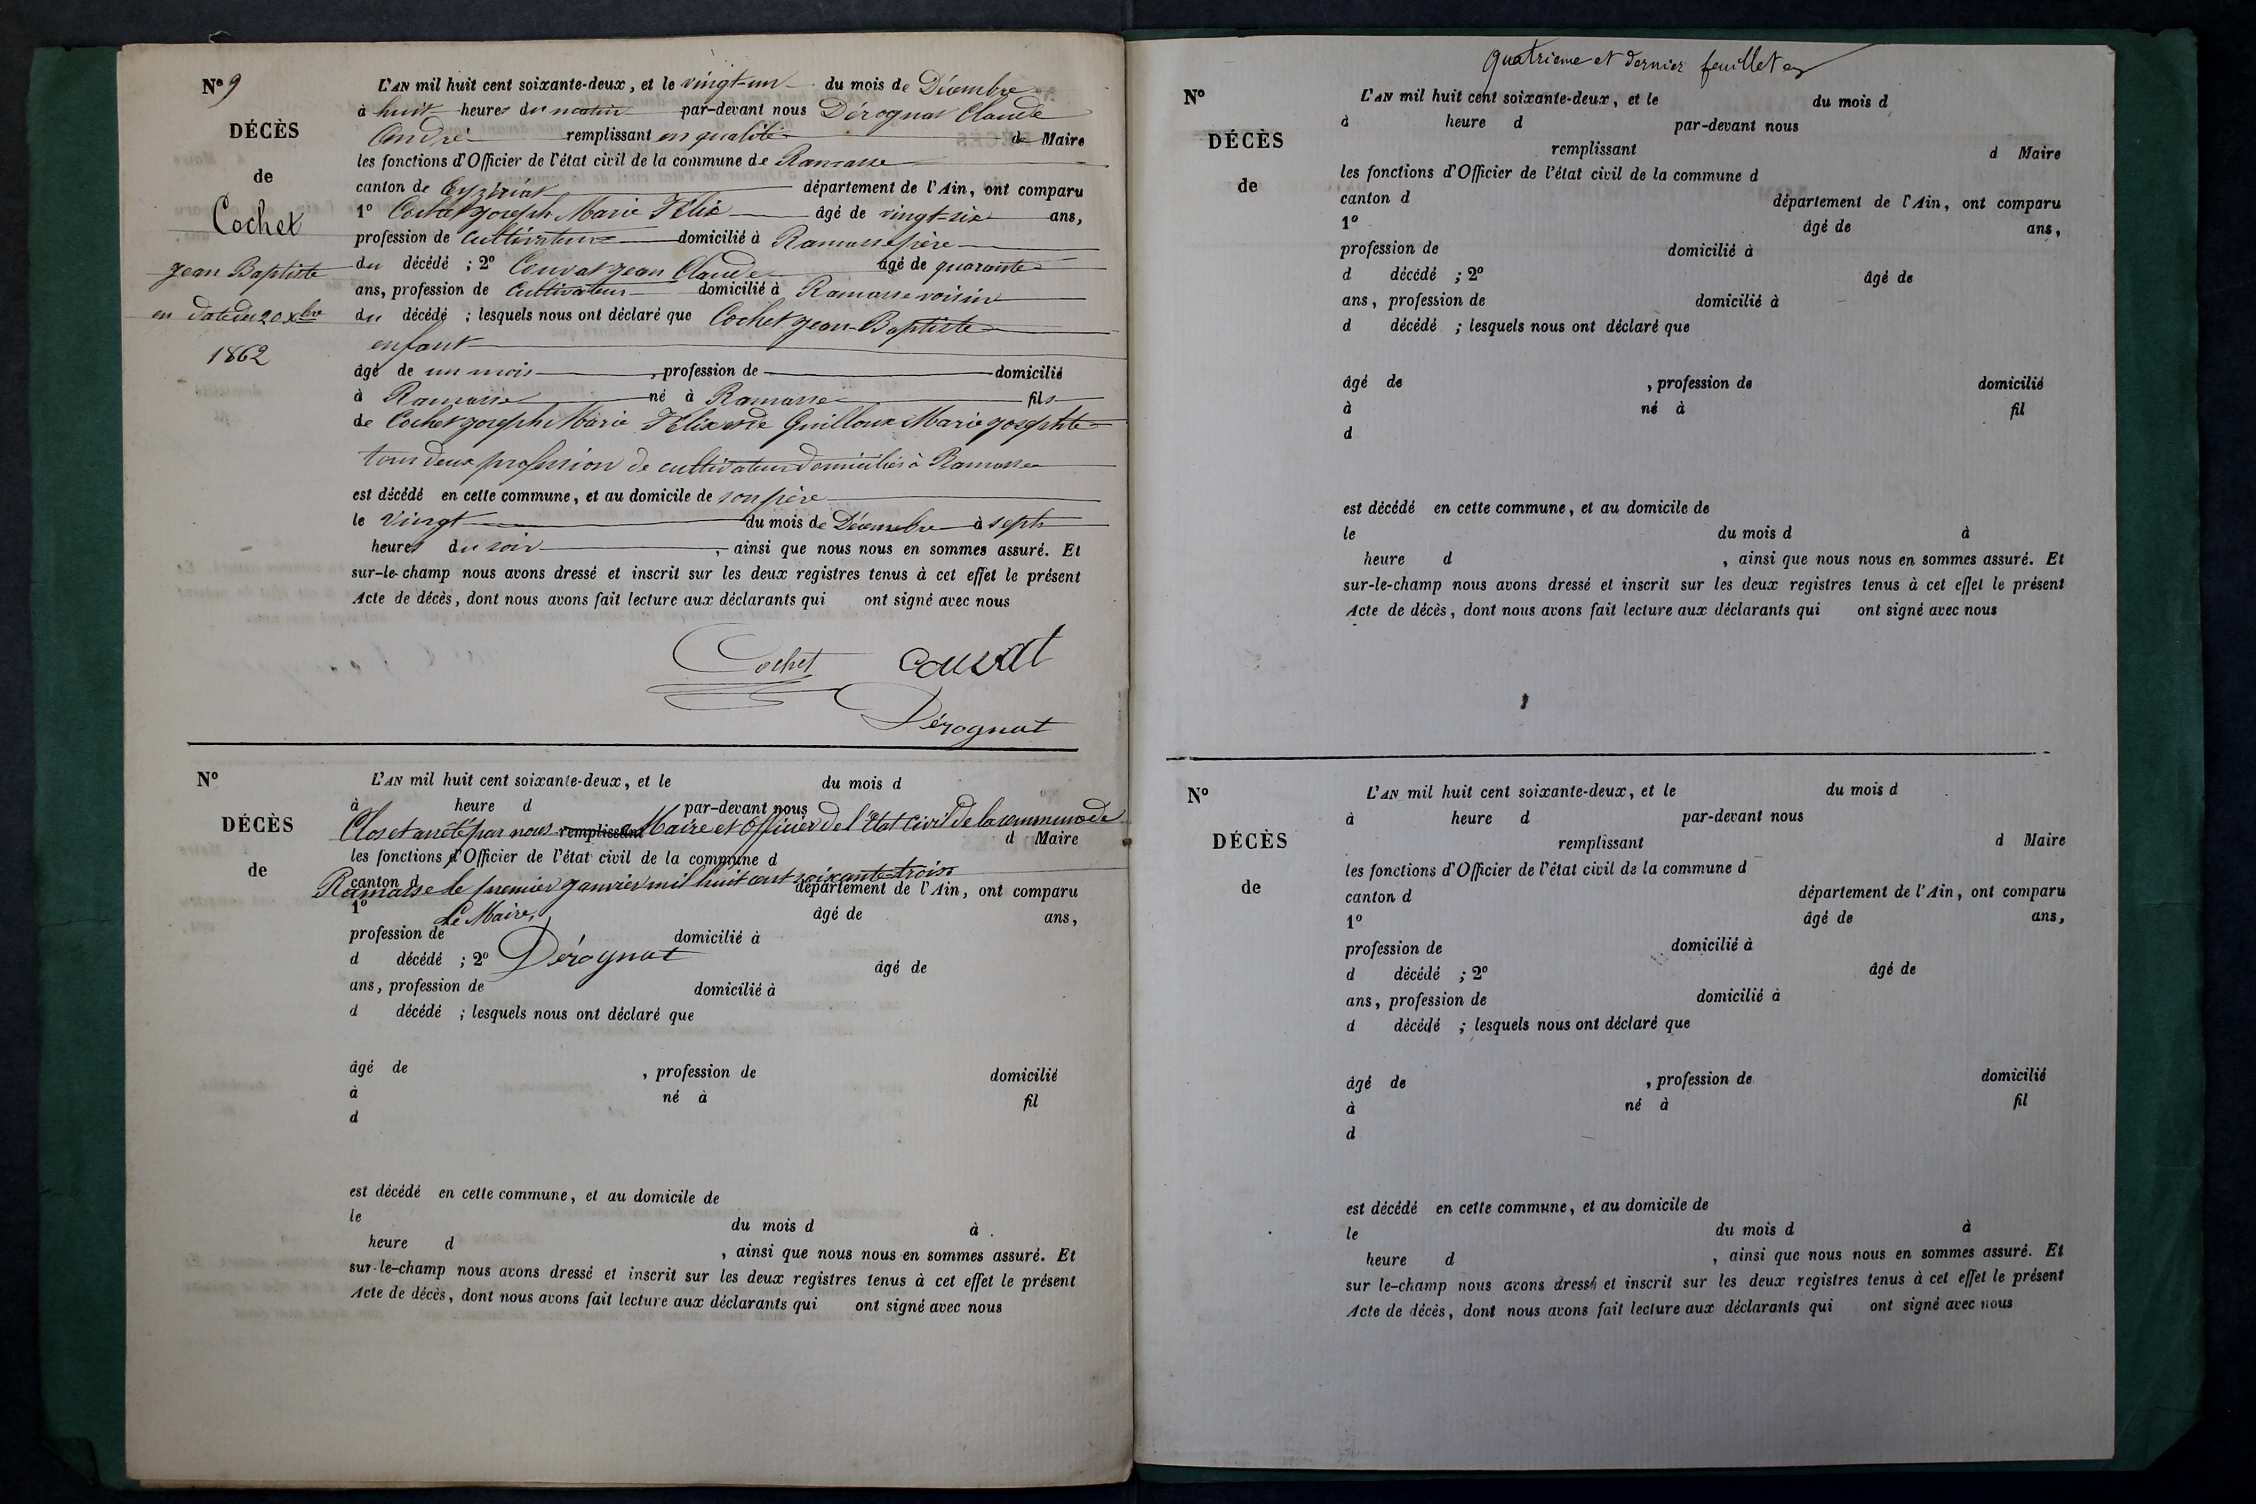 Nº 9
DÉCÈS
de
Cochet
Jean Baptiste
en date du 20 Xbre
1862
L'AN mil huit cent soixante-deux, et le vingt-un du mois de Décembre
à huit heures du matin par-devant nous Dérognat Claude
André remplissant en qualité de Maire
les fonctions d'Officier de l'état civil de la commune de Ramasse
canton de Ceyzériat département de l'Ain, ont comparu
1º Cochet Joseph Marie Félix âgé de vingt-six ans,
profession de cultivateur domicilié à Ramasse père
du décédé ; 2º Couvat Jean Claude âgé de quarante
ans, profession de Cultivateur domicilié à Ramasse voisin
du décédé ; lesquels nous ont déclaré que Cochet Jean-Baptiste
enfant
âgé de un mois , profession de domicilié
à Ramasse né à Ramasse fils
de Cochet Joseph Marie Félix et de Guilloux Marie Josephte
tous deux profession de cultivateur domiciliés à Ramasse
est décédé en cette commune, et au domicile de son père
le Vingt du mois de Décembre à sept
heures du soir , ainsi que nous nous en sommes assuré. Et
sur-le-champ nous avons dressé et inscrit sur les deux registres tenus à cet effet le présent
Acte de décès, dont nous avons fait lecture aux déclarants qui ont signé avec nous
Cochet Couvat
Dérognat
Nº
DÉCÈS
de
L'AN mil huit cent soixante-deux, et le du mois d
à heure d par-devant nous
Clos et arrêté par nous remplissant Maire et Officier de l'Etat Civil de la commune de
d Maire
les fonctions d'Officier de l'état civil de la commune d
Ramasse le premier janvier mil huit cent soixante-trois
canton d département de l'Ain, ont comparu
1º âgé de ans,
Le Maire,
profession de domicilié à
Dérognat
d décédé ; 2º âgé de
ans, profession de domicilié à
d décédé ; lesquels nous ont déclaré que
âgé de , profession de domicilié
à né à fil
d
est décédé en cette commune, et au domicile de
le du mois d à
heure d , ainsi que nous nous en sommes assuré. Et
sur-le-champ nous avons dressé et inscrit sur les deux registres tenus à cet effet le présent
Acte de décès, dont nous avons fait lecture aux déclarants qui ont signé avec nous
Quatrieme et dernier feuillet
Nº
DÉCÈS
de
L'AN mil huit cent soixante-deux, et le du mois d
à heure d par-devant nous
remplissant d Maire
les fonctions d'Officier de l'état civil de la commune d
canton d département de l'Ain, ont comparu
1º âgé de ans,
profession de domicilié à
d décédé ; 2º âgé de
ans, profession de domicilié à
d décédé ; lesquels nous ont déclaré que
âgé de , profession de domicilié
à né à fil
d
est décédé en cette commune, et au domicile de
le du mois d à
heure d , ainsi que nous nous en sommes assuré. Et
sur-le-champ nous avons dressé et inscrit sur les deux registres tenus à cet effet le présent
Acte de décès, dont nous avons fait lecture aux déclarants qui ont signé avec nous
Nº
DÉCÈS
de
L'AN mil huit cent soixante-deux, et le du mois d
à heure d par-devant nous
remplissant d Maire
les fonctions d'Officier de l'état civil de la commune d
canton d département de l'Ain, ont comparu
1º âgé de ans,
profession de domicilié à
d décédé ; 2º âgé de
ans, profession de domicilié à
d décédé ; lesquels nous ont déclaré que
âgé de , profession de domicilié
à né à fil
d
est décédé en cette commune, et au domicile de
le du mois d à
heure d , ainsi que nous nous en sommes assuré. Et
sur le-champ nous avons dressé et inscrit sur les deux registres tenus à cet effet le présent
Acte de décès, dont nous avons fait lecture aux déclarants qui ont signé avec nous